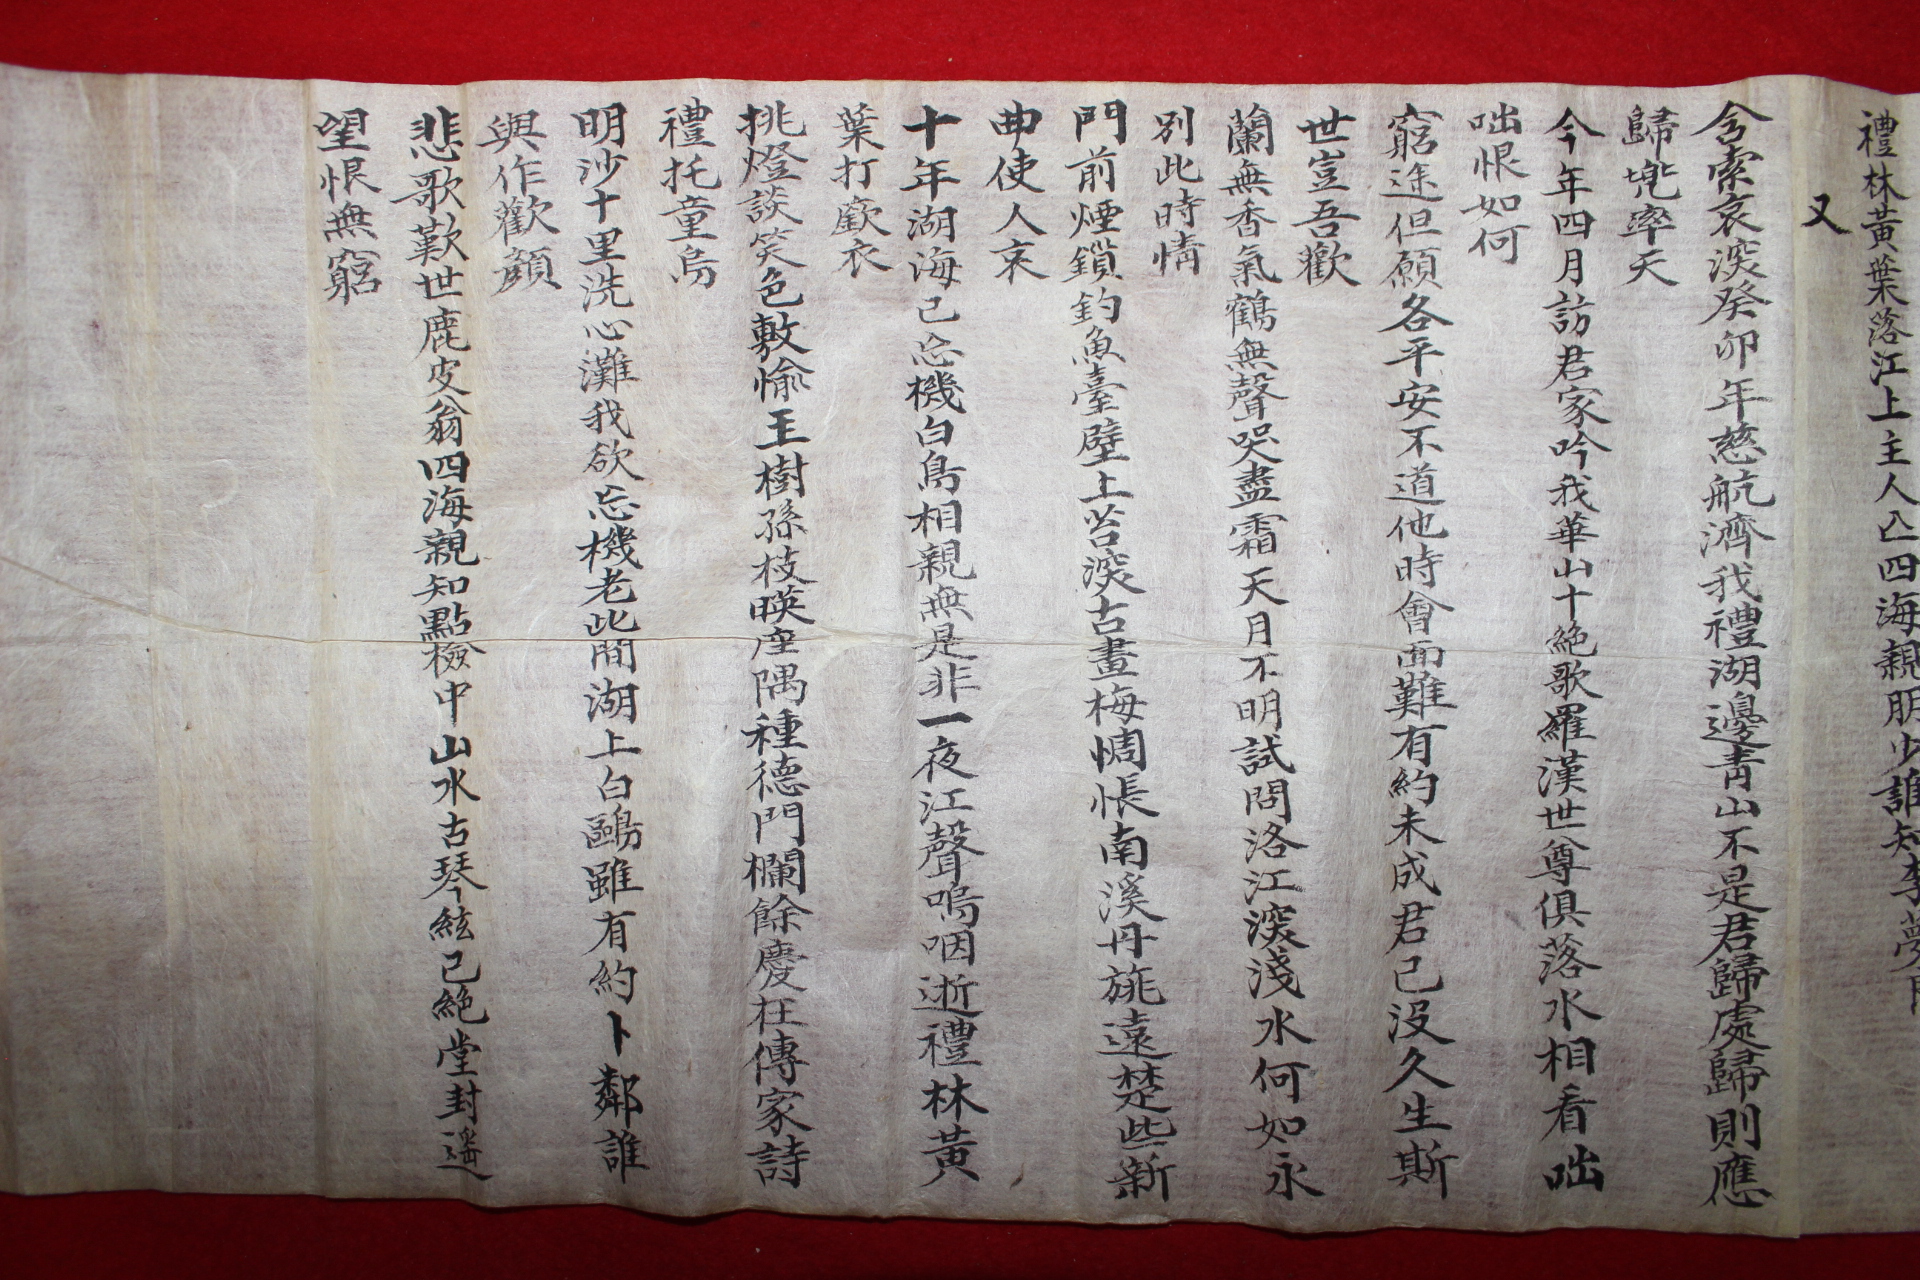 禮林黃葉落江上主人亡四海親朋少誰知李夢
又
含索哀淚癸卯年慈航濟我禮湖邊靑山不是君歸處歸則應
歸兠率天
今年四月訪君家吟我華山十絶歌羅漢世尊俱落水相看咄
咄恨如何
窮途但願各平安不道他時會面難有約未成君已沒久生斯
世豈吾歡
蘭無香氣鶴無聲哭盡霜天月不明試問洛江深淺水何如永
別此時情
門前煙鎖釣魚臺壁上苔深古畫梅惆悵南溪丹旐遠楚些新
曲使人哀
十年湖海已忘機白鳥相親無是非一夜江聲嗚咽逝禮林黃
葉打歛衣
挑燈談笑色敷愉王樹孫枝暎座隅種德門欄餘慶在傳家詩
禮托童烏
明沙十里洗心灘我欲忘機老此間湖上白鷗雖有約卜鄰誰
與作歡顔
悲歌歎世鹿皮翁四海親知點檢中山水古琴絃已絶堂封遙
望恨無窮